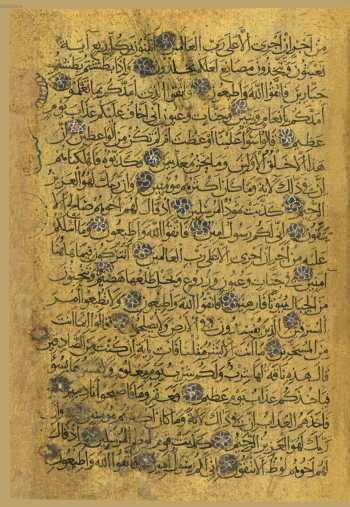 من أجر إن أجري إلا على رب العالمين أتبنون بكل ريع آية
تعبثون وتتخذون مصانع لعلكم تخلدون وإذا بطشتم بطشتم
جبارين فاتقوا الله وأطيعون واتقوا الذي أمدكم بما تعلمون
أمدكم بأنعام وبنين وجنات وعيون إني أخاف عليكم عذاب يوم
عظيم قالوا سواء علينا أوعظت أم لم تكن من الواعظين إن
هذا إلا خلق الأولين وما نحن بمعذبين فكذبوه فأهلكناهم
إن في ذلك لآية وما كان أكثرهم مؤمنين وإن ربك لهو العزيز
الرحيم كذبت ثمود المرسلين إذ قال لهم أخوهم صالح ألا
تتقون إني لكم رسول أمين فاتقوا الله وأطيعون وما أسألكم
عليه من أجر إن أجري إلا على رب العالمين أتتركون في ما هاهنا
آمنين في جنات وعيون وزروع ونخل طلعها هضيم وتنحتون
من الجبال بيوتا فارهين فاتقوا الله وأطيعون ولا تطيعوا أمر
المسرفين الذين يفسدون في الأرض ولا يصلحون قالوا إنما أنت
من المسحرين ما أنت إلا بشر مثلنا فأت بآية إن كنت من الصادقين
قال هذه ناقة لها شرب ولكم شرب يوم معلوم ولا تمسوها بسوء
فيأخذكم عذاب يوم عظيم فعقروها فأصبحوا نادمين
فأخذهم العذاب إن في ذلك لآية وما كان أكثرهم مؤمنين وإن
ربك لهو العزيز الرحيم كذبت قوم لوط المرسلين إذ قال
لهم أخوهم لوط ألا تتقون إني لكم رسول أمين فاتقوا الله وأطيعون